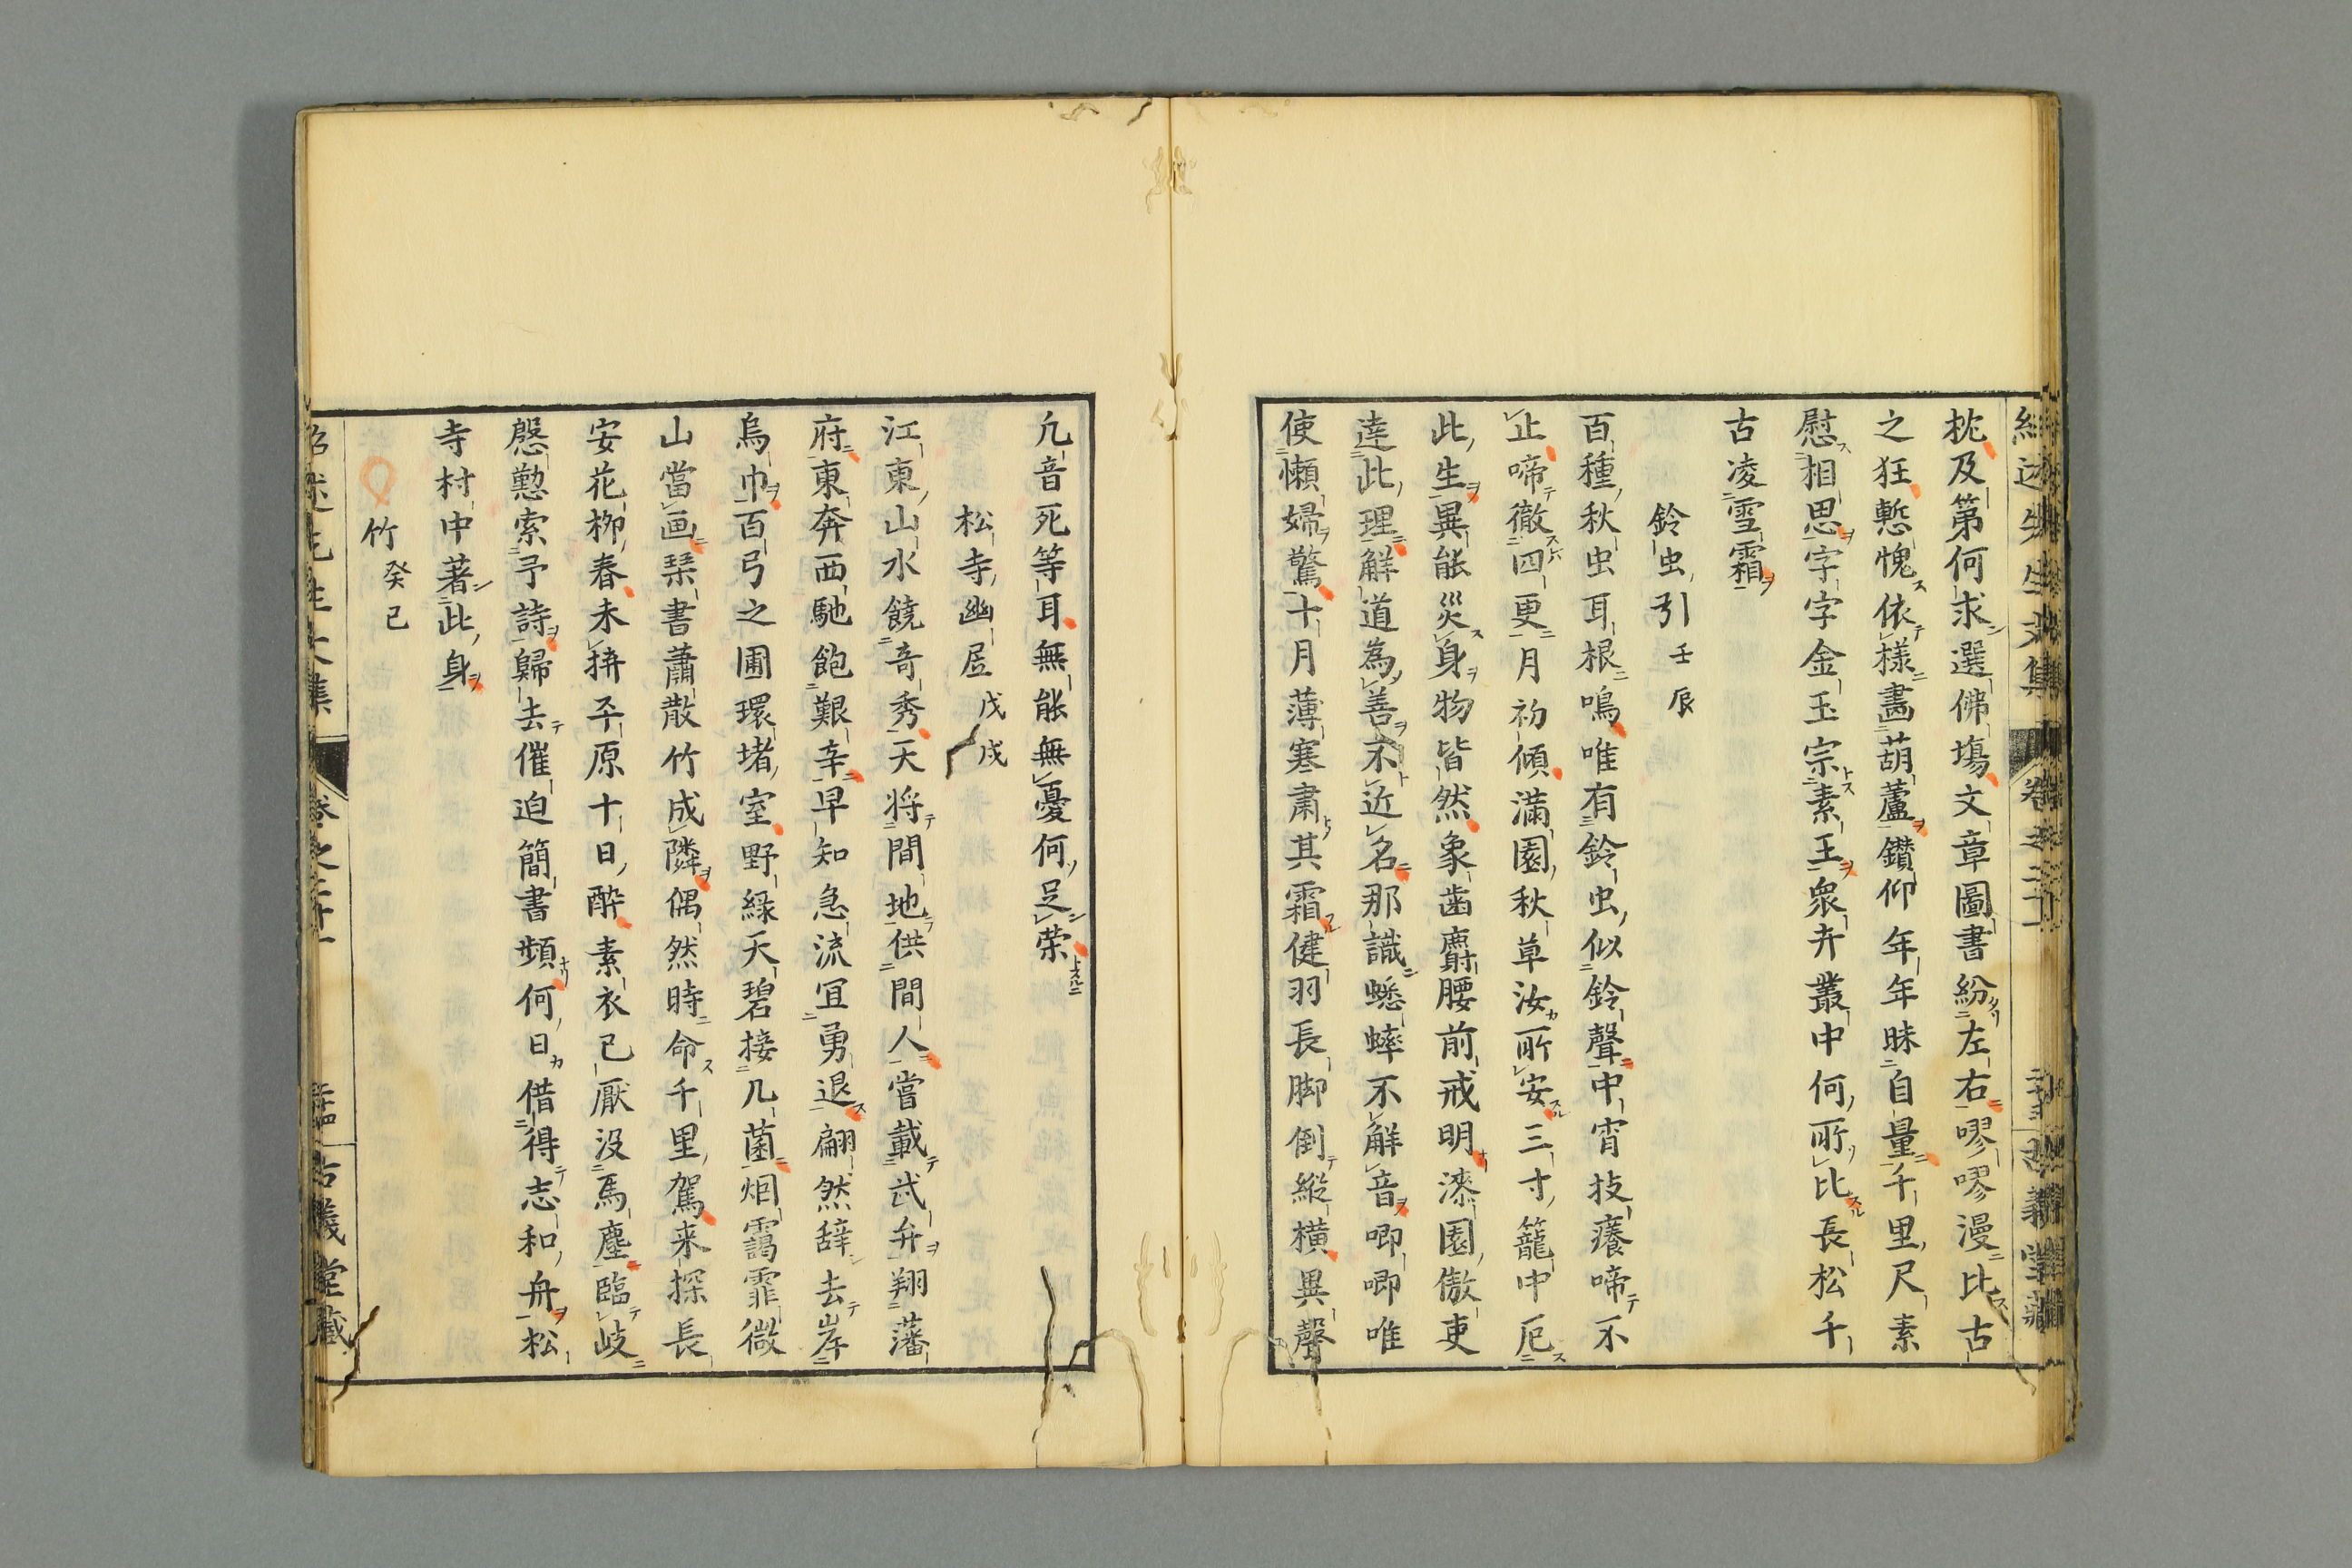 枕及第何求選佛塲文章圖書紛左右嘐嘐漫比古
之狂慙愧依樣畫葫蘆鑽仰年年昧自量千里尺素
慰相思字字金玉宗素王衆卉叢中何所比長松千
古凌雪霜
鈴虫引 壬辰
百種秋虫耳根鳴唯有鈴虫似鈴聲中宵技癢啼不
止啼徹四更月初傾滿園秋草汝所安三寸籠中厄
此生異能災身物皆然象齒麝腰前戒明漆園傲吏
達此理解道為善不近名那識蟋蟀不解音唧唧唯
使懶婦驚十月薄寒肅其霜健羽長脚倒縱橫異聲
凢音死等耳無能無憂何足荣
松寺幽居 戊戌
江東山水饒奇秀天将間地供間人嘗載武弁翔藩
府東奔西馳飽艱辛早知急流冝勇退翩然辞去岸
烏巾百弓之圃環堵室野緑天碧接几菌烟靄霏微
山當画栞書蕭散竹成隣偶然時命千里駕来探長
安花栁春未拚平原十日酔素衣已厭没馬塵臨岐
慇懃索予詩歸去催迫簡書頻何日借得志和舟松
寺村中著此身
竹 癸巳
卷之二十一
古義堂藏